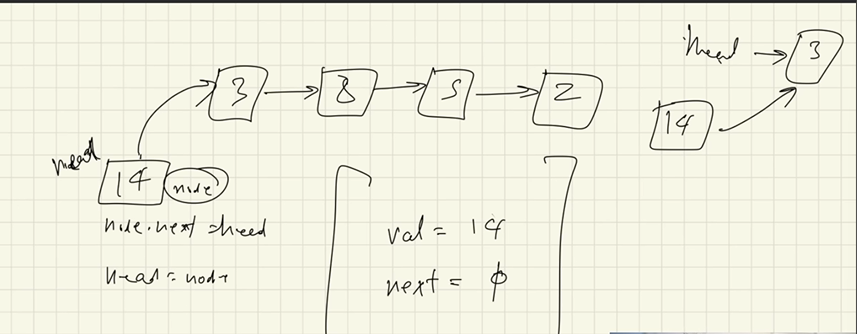 head → 3
3 → 8 → 5 → 2
14
head
14 node
node.next = head
head = node
val = 14
next = φ